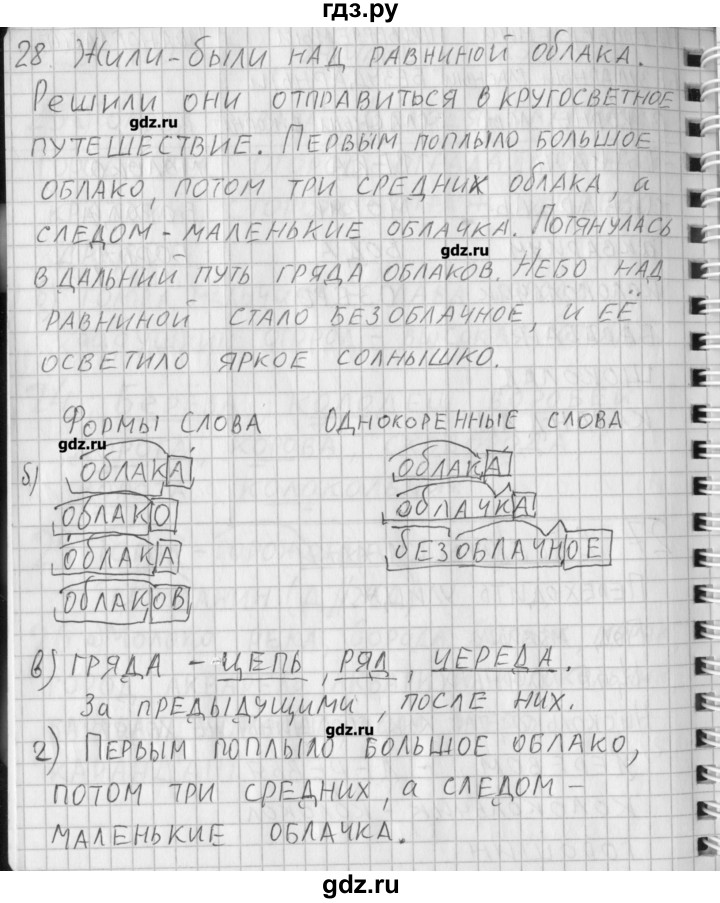 гдз.ру
28. Жили-были над равниной облака.
Решили они отправиться в кругосветное
gdz.ru
путешествие. Первым поплыло большое
облако, потом три средних облака, а
следом - маленькие облачка. Потянулась
gdz.ru
в дальний путь гряда облаков. Небо над
равниной стало безоблачное, и её
осветило яркое солнышко.
Формы слова Однокоренные слова
gdz.ru
б) облака облака
облако облачка
облака безоблачное
облаков
в) гряда - цепь, ряд, череда.
За предыдущими, после них.
gdz.ru
г) Первым поплыло большое облако,
потом три средних, а следом -
маленькие облачка.
gdz.ru